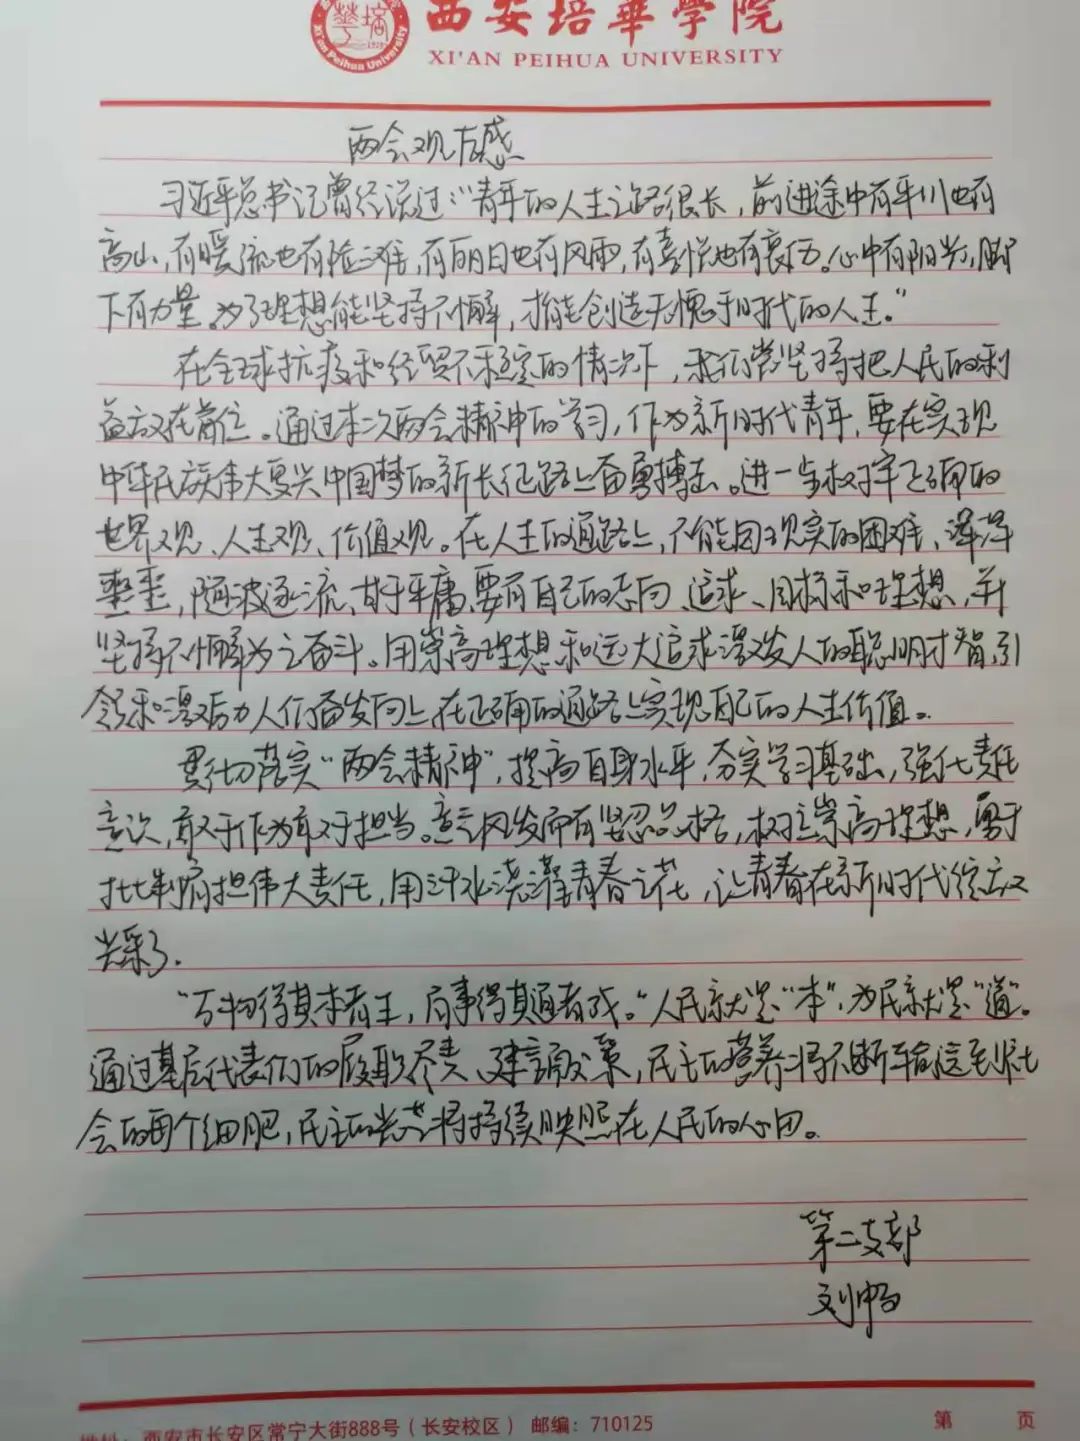 西安培華學院
XI'AN PEIHUA UNIVERSITY
Xi'an Peihua University
两会观后感
习近平总书记曾经说过:"青年的人生之路很长,前进途中有平川也有
高山,有暖流也有险滩,有丽日也有风雨,有喜悦也有哀伤。心中有阳光,脚
下有力量。为了理想能坚持不懈,才能创造无愧于时代的人生。"
在全球抗疫和经贸不稳定的情况下,我们常坚持把人民的利
益放在首位。通过本次两会精神的学习,作为新时代青年,要在实现
中华民族伟大复兴中国梦的新长征路上奋勇搏击。进一步树牢正确的
世界观、人生观、价值观。在人生的道路上,不能因现实的困难、浑浑
噩噩,随波逐流、甘于平庸,要有自己的志向、追求、目标和理想,并
坚持不懈为之奋斗。用崇高理想和远大追求激发人的聪明才智,引
领和激励人们奋发向上,在正确的道路上实现自己的人生价值。
贯彻落实"两会精神",提高自身水平,夯实学习基础,强化责任
意识,敢于作为敢于担当。意气风发而有坚忍品格,树立崇高理想,勇于
肩担伟大责任,用汗水浇灌青春之花,让青春在新时代绽放
光彩。
"万物得其本者生,百事得其道者成。"人民就是"本",为民就是"道"。
通过基层代表们的履职尽责、建言献策,民主的营养将不断输送到社
会的每个细胞,民主的光芒将持续映照在人民的心田。
第二支部
刘畅
地址:西安市长安区常宁大街888号(长安校区) 邮编:710125
第 页